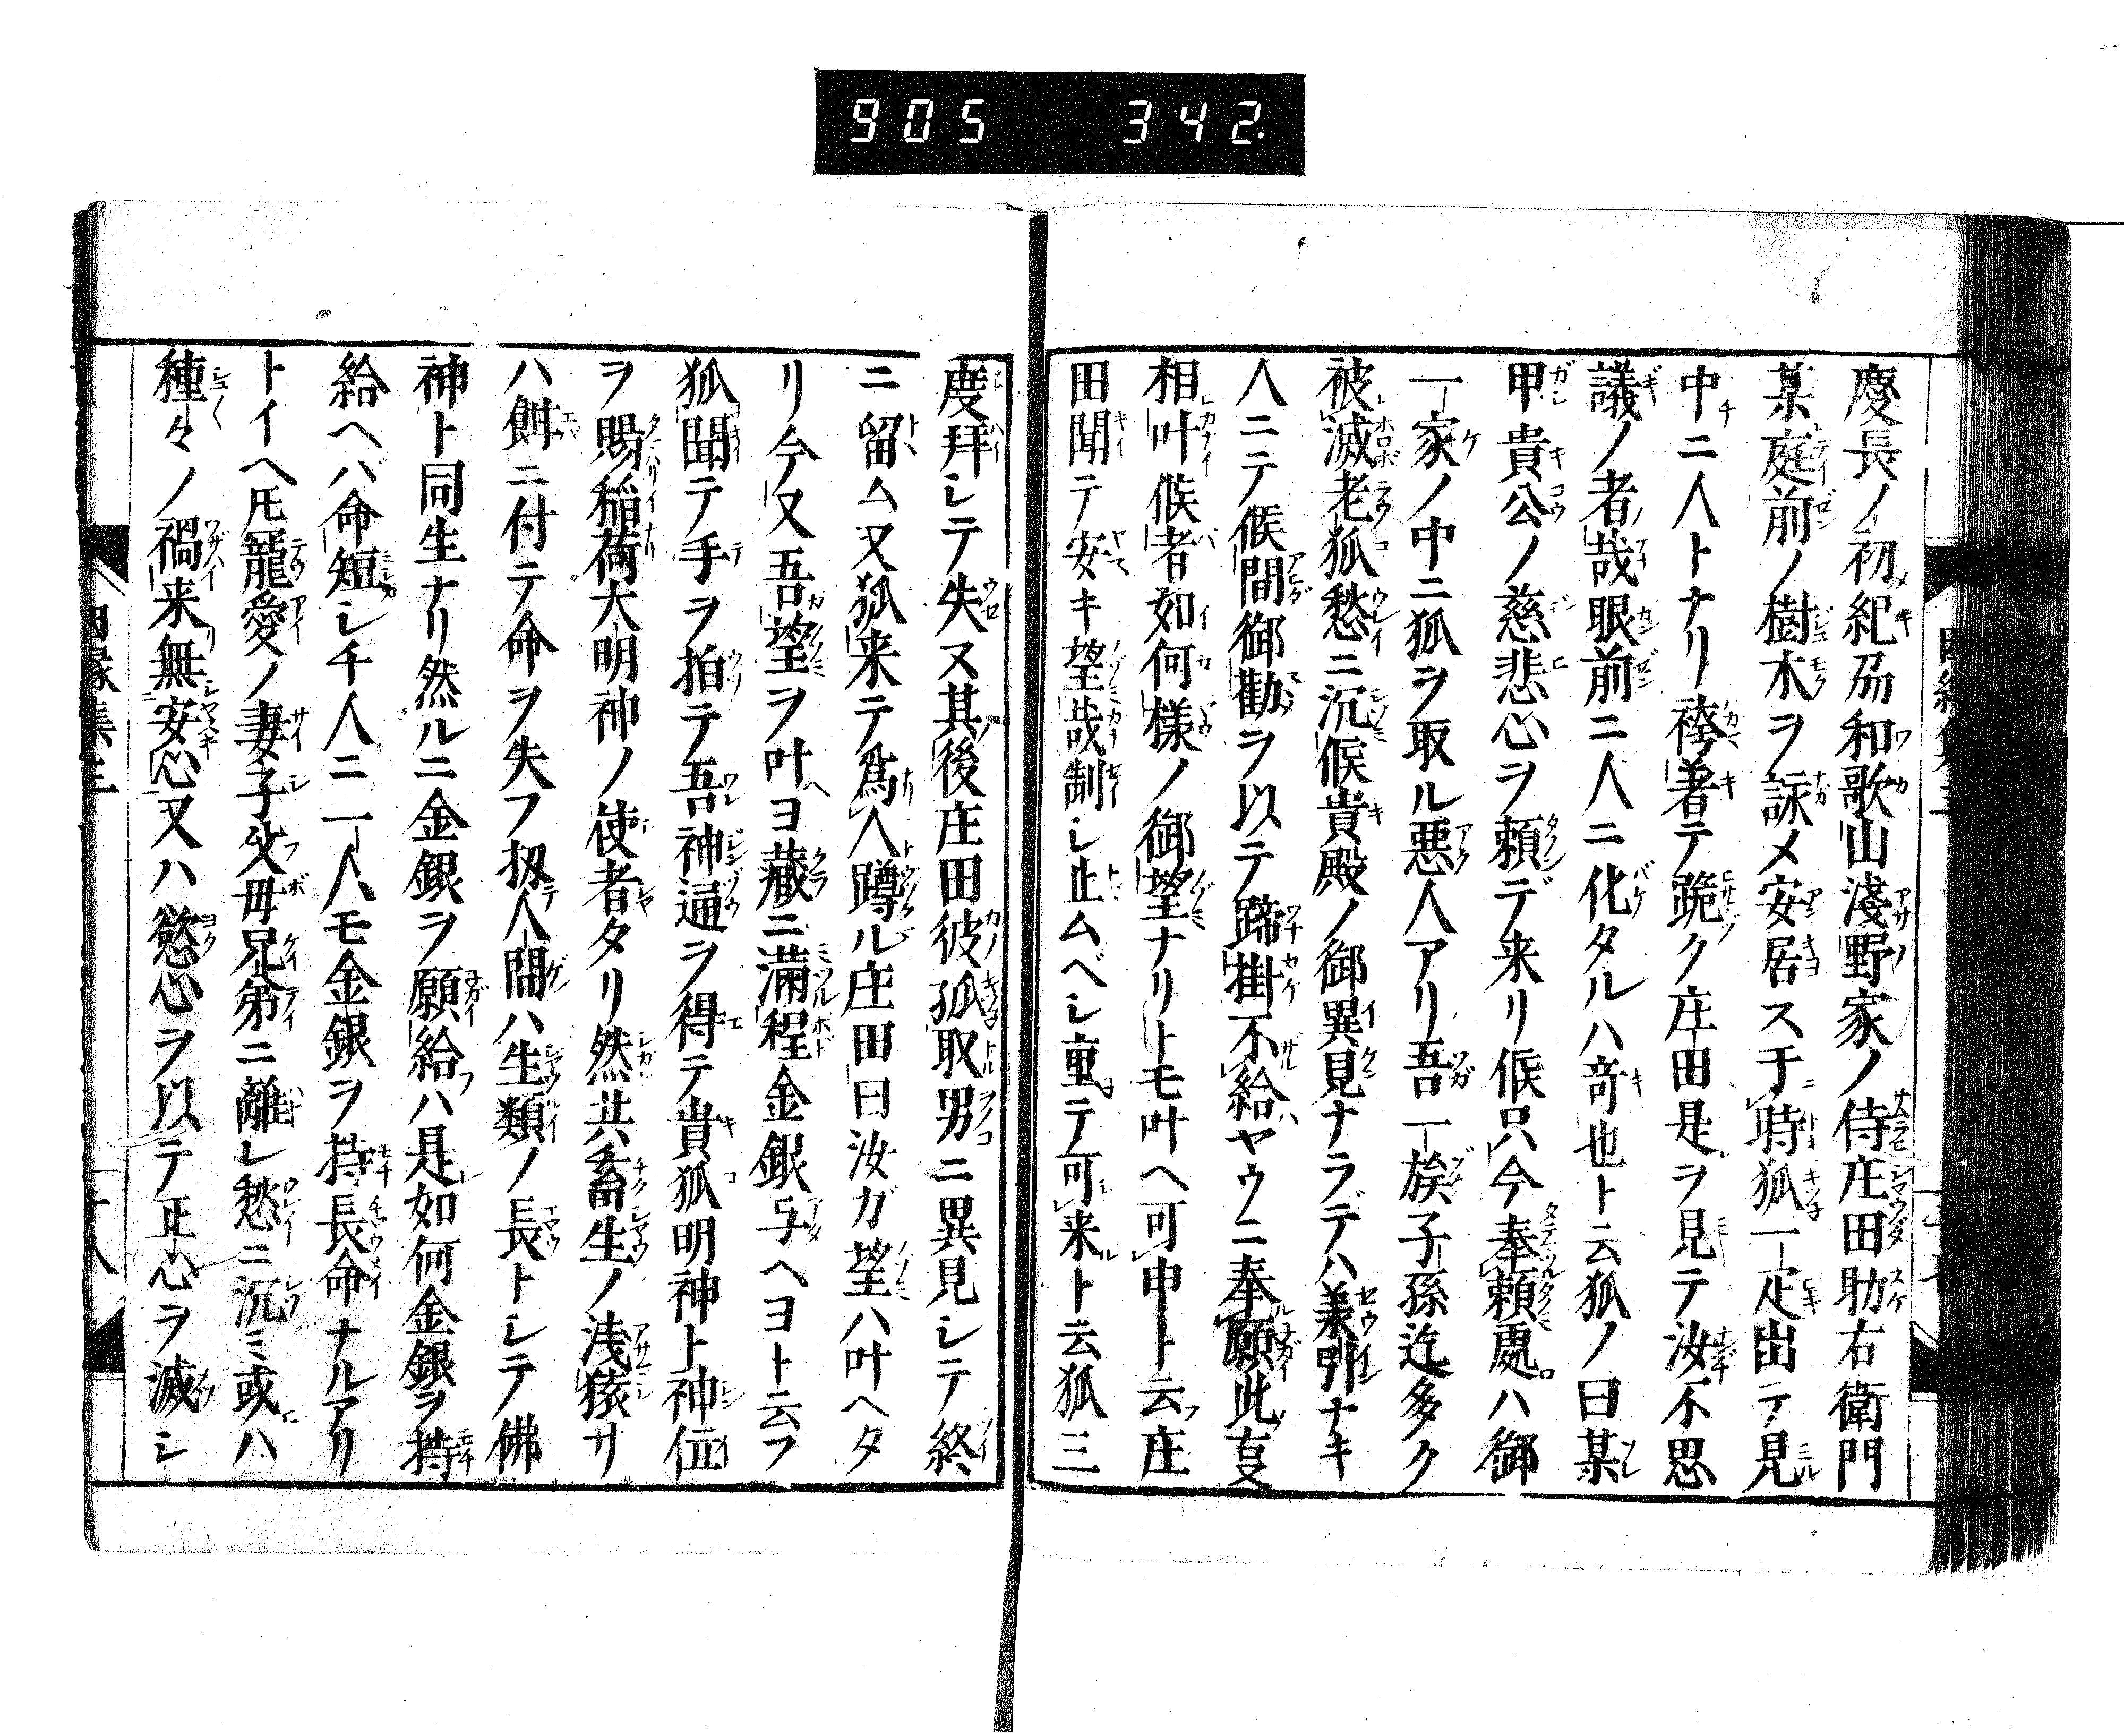 905 342
慶長ノ初紀刕和歌山淺野家ノ侍庄田助右衛門
某庭前ノ樹木ヲ詠メ安居ス于時狐一疋出テ見
中ニ人トナリ袴著テ跪ク庄田是ヲ見テ汝不思
議ノ者哉眼前ニ人ニ化タルハ竒也ト云狐ノ曰某
甲貴公ノ慈悲心ヲ頼デ来リ候只今奉頼處ハ御
一家ノ中ニ狐ヲ取ル悪人アリ吾一族子孫迄多ク
被滅老狐愁ニ沉候貴殿ノ御異見ナラデハ義引ナキ
人ニテ候間御勸ヲ以テ蹄掛不給ヤウニ奉願此叓
相叶候者如何様ノ御望ナリトモ叶ヘ可申ト云庄
田聞テ安キ望哉制シ止ムベシ重テ可来ト云狐三
度拜シテ失ヌ其後庄田彼狐取男ニ異見シテ終
ニ留ム又狐来テ爲人蹲ル庄田曰汝ガ望ハ叶ヘタ
リ今又吾望ヲ叶ヨ藏ニ滿程金銀与ヘヨト云フ
狐聞テ手ヲ拍テ吾神通ヲ得テ貴狐明神ト神位
ヲ賜稲荷大明神ノ使者タリ然共畜生ノ浅猿サ
ハ餌ニ付テ命ヲ失フ扨人間ハ生類ノ長トシテ佛
神ト同生ナリ然ルニ金銀ヲ願給ハ是如何金銀ヲ持
給ヘバ命短シ千人ニ一人モ金銀ヲ持長命ナルアリ
トイヘ𪜈寵愛ノ妻子父母兄弟ニ離レ愁ニ沉ミ或ハ
種々ノ禍来無安心又ハ慾心ヲ以テ正心ヲ滅シ
因縁集三